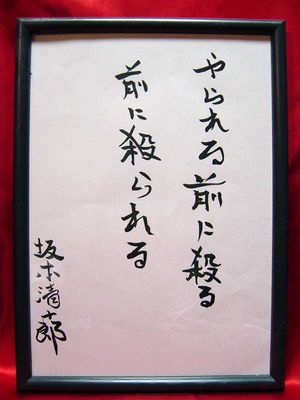 やられる前に殺る
前に殺られる
坂本清十郎